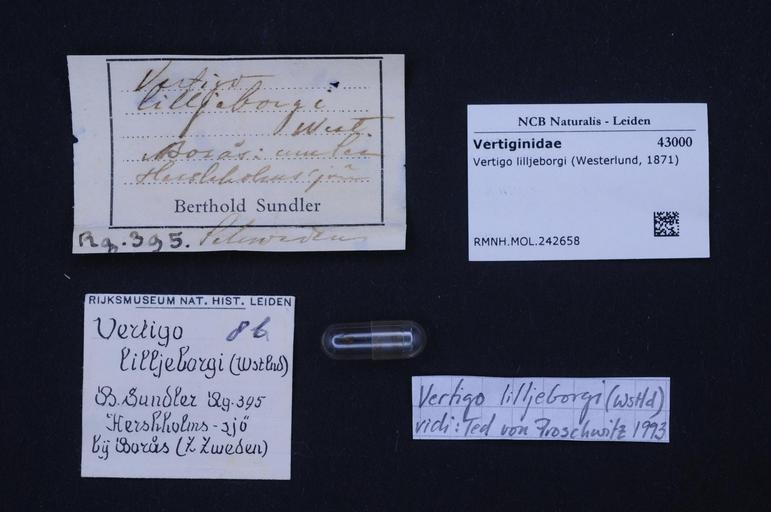 Vertigo
lilljeborgi
West.
Borås:
Hersholms sjön
Berthold Sundler
Rg. 395. Schweden
NCB Naturalis - Leiden
Vertiginidae 43000
Vertigo lilljeborgi (Westerlund, 1871)
RMNH.MOL.242658
RIJKSMUSEUM NAT. HIST. LEIDEN
Vertigo 86
lilljeborgi (Wstlnd)
B. Sundler Rg. 395
Hershholms-sjö
bÿ Borås (Z Zweden)
Vertigo lilljeborgi (Wstld)
vidi: Ted von Proschwitz 1993